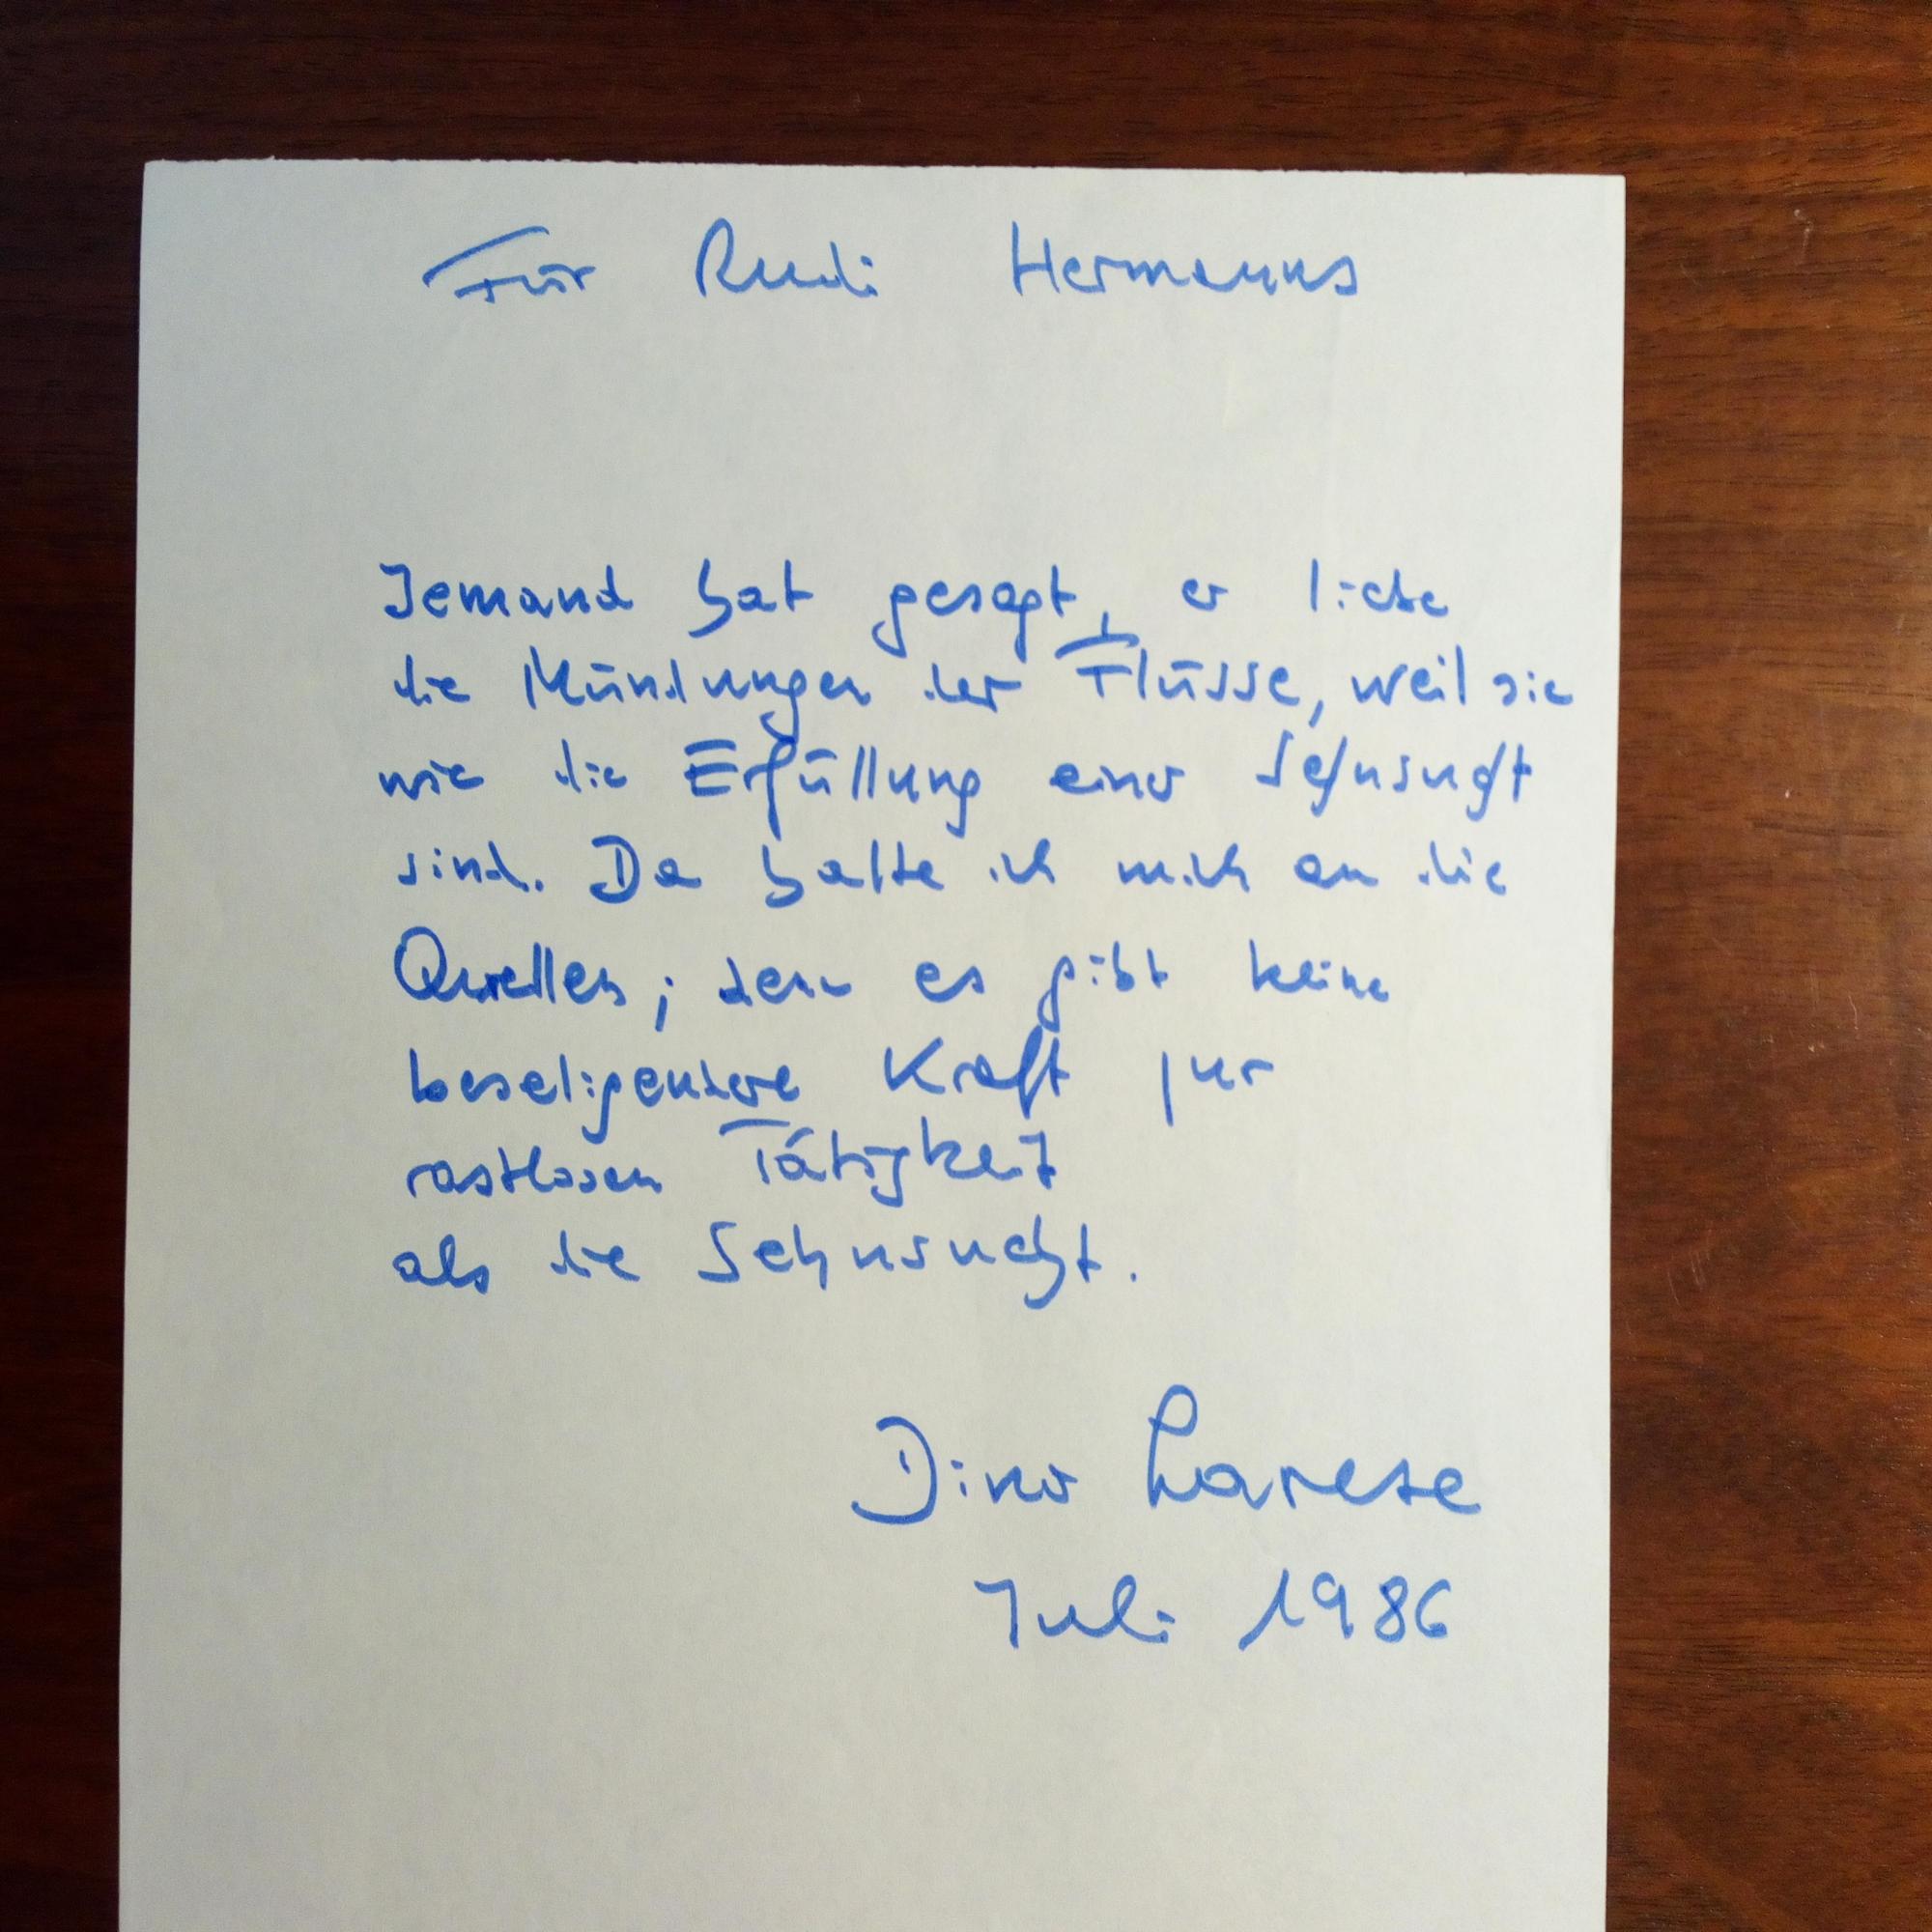 Für Rudi Hermanns
Jemand hat gesagt, er liebe
die Mündungen der Flüsse, weil sie
wie die Erfüllung einer Sehnsucht
sind. Da halte ich mich an die
Quellen; denn es gibt keine
beseligendere Kraft zur
rastlosen Tätigkeit
als die Sehnsucht.
Dino Larese
Juli 1986